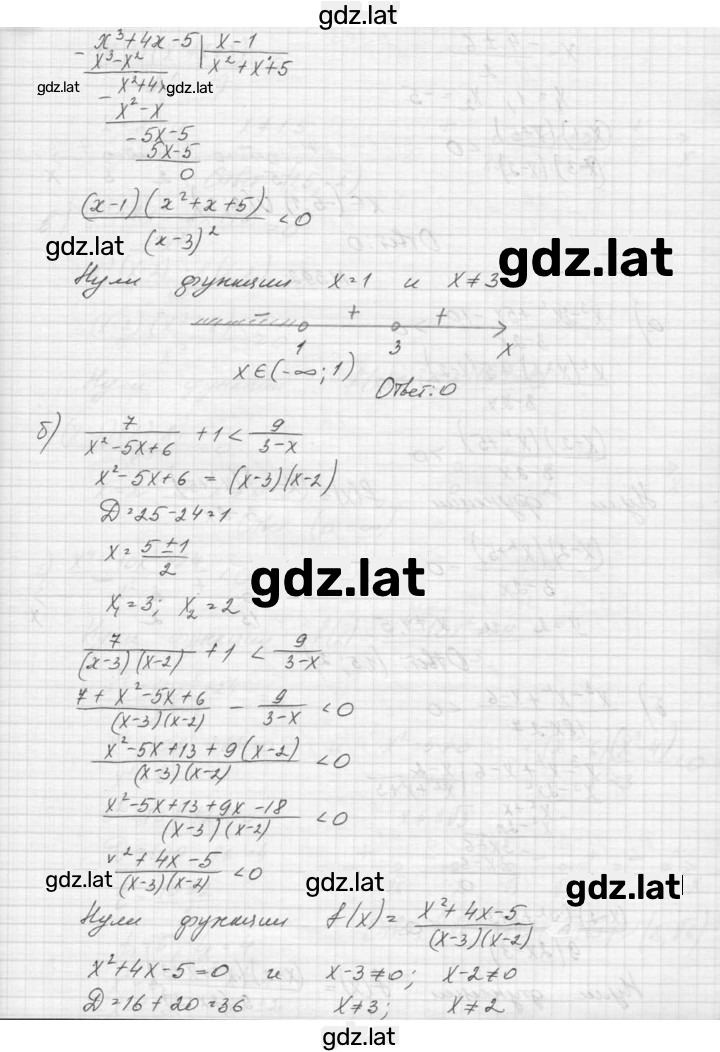 gdz.lat
x³+4x-5 | x-1
x³-x² x²+x+5
gdz.lat x²+4x gdz.lat
x²-x
5x-5
5x-5
0
(x-1)(x²+x+5)/(x-3)² <0
gdz.lat
gdz.lat
Нули функции x=1 и x≠3
- + +
1 3 x
x∈(-∞;1)
Ответ: 0
б) 7/(x²-5x+6) +1< 9/(3-x)
x²-5x+6 = (x-3)(x-2)
D=25-24=1
x= (5±1)/2
gdz.lat
x₁=3; x₂=2
7/((x-3)(x-2)) +1 < 9/(3-x)
(7+x²-5x+6)/((x-3)(x-2)) - 9/(3-x) <0
(x²-5x+13+9(x-2))/((x-3)(x-2)) <0
(x²-5x+13+9x-18)/((x-3)(x-2)) <0
(x²+4x-5)/((x-3)(x-2)) <0
gdz.lat gdz.lat gdz.lat
Нули функции f(x)= (x²+4x-5)/((x-3)(x-2))
x²+4x-5=0 и x-3≠0; x-2≠0
D=16+20=36 x≠3; x≠2
gdz.lat